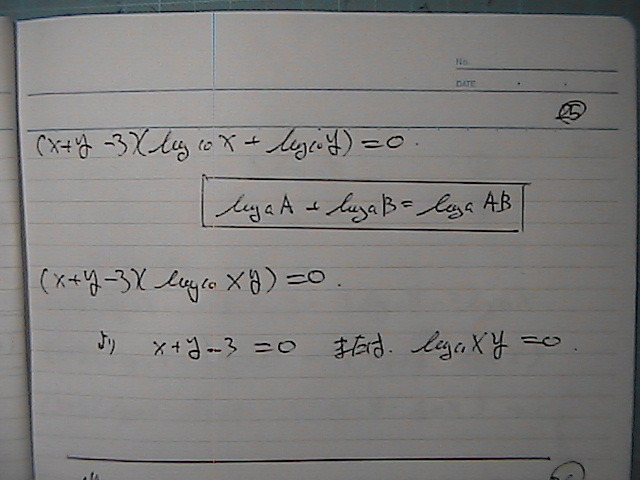 No.
DATE
25
(x+y-3)(log₁₀x + log₁₀y) = 0.
logₐA + logₐB = logₐAB
(x+y-3)(log₁₀xy) = 0.
より x+y-3 = 0 または. log₁₀xy = 0.